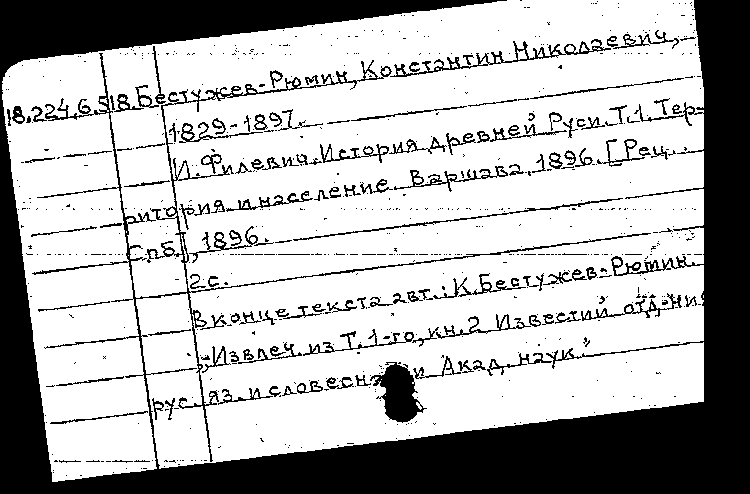 18.224.6.518. Бестужев-Рюмин, Константин Николаевич,
1829-1897.
И. Филевич. История древней Руси. Т. 1. Тер-
ритория и население. Варшава, 1896. [Рец.
Спб.], 1896.
2 с.
В конце текста авт.: К. Бестужев-Рюмин.
„Извлеч. из Т. 1-го, кн. 2 Известий отд-ния
рус. яз. и словесн и Акад. наук."